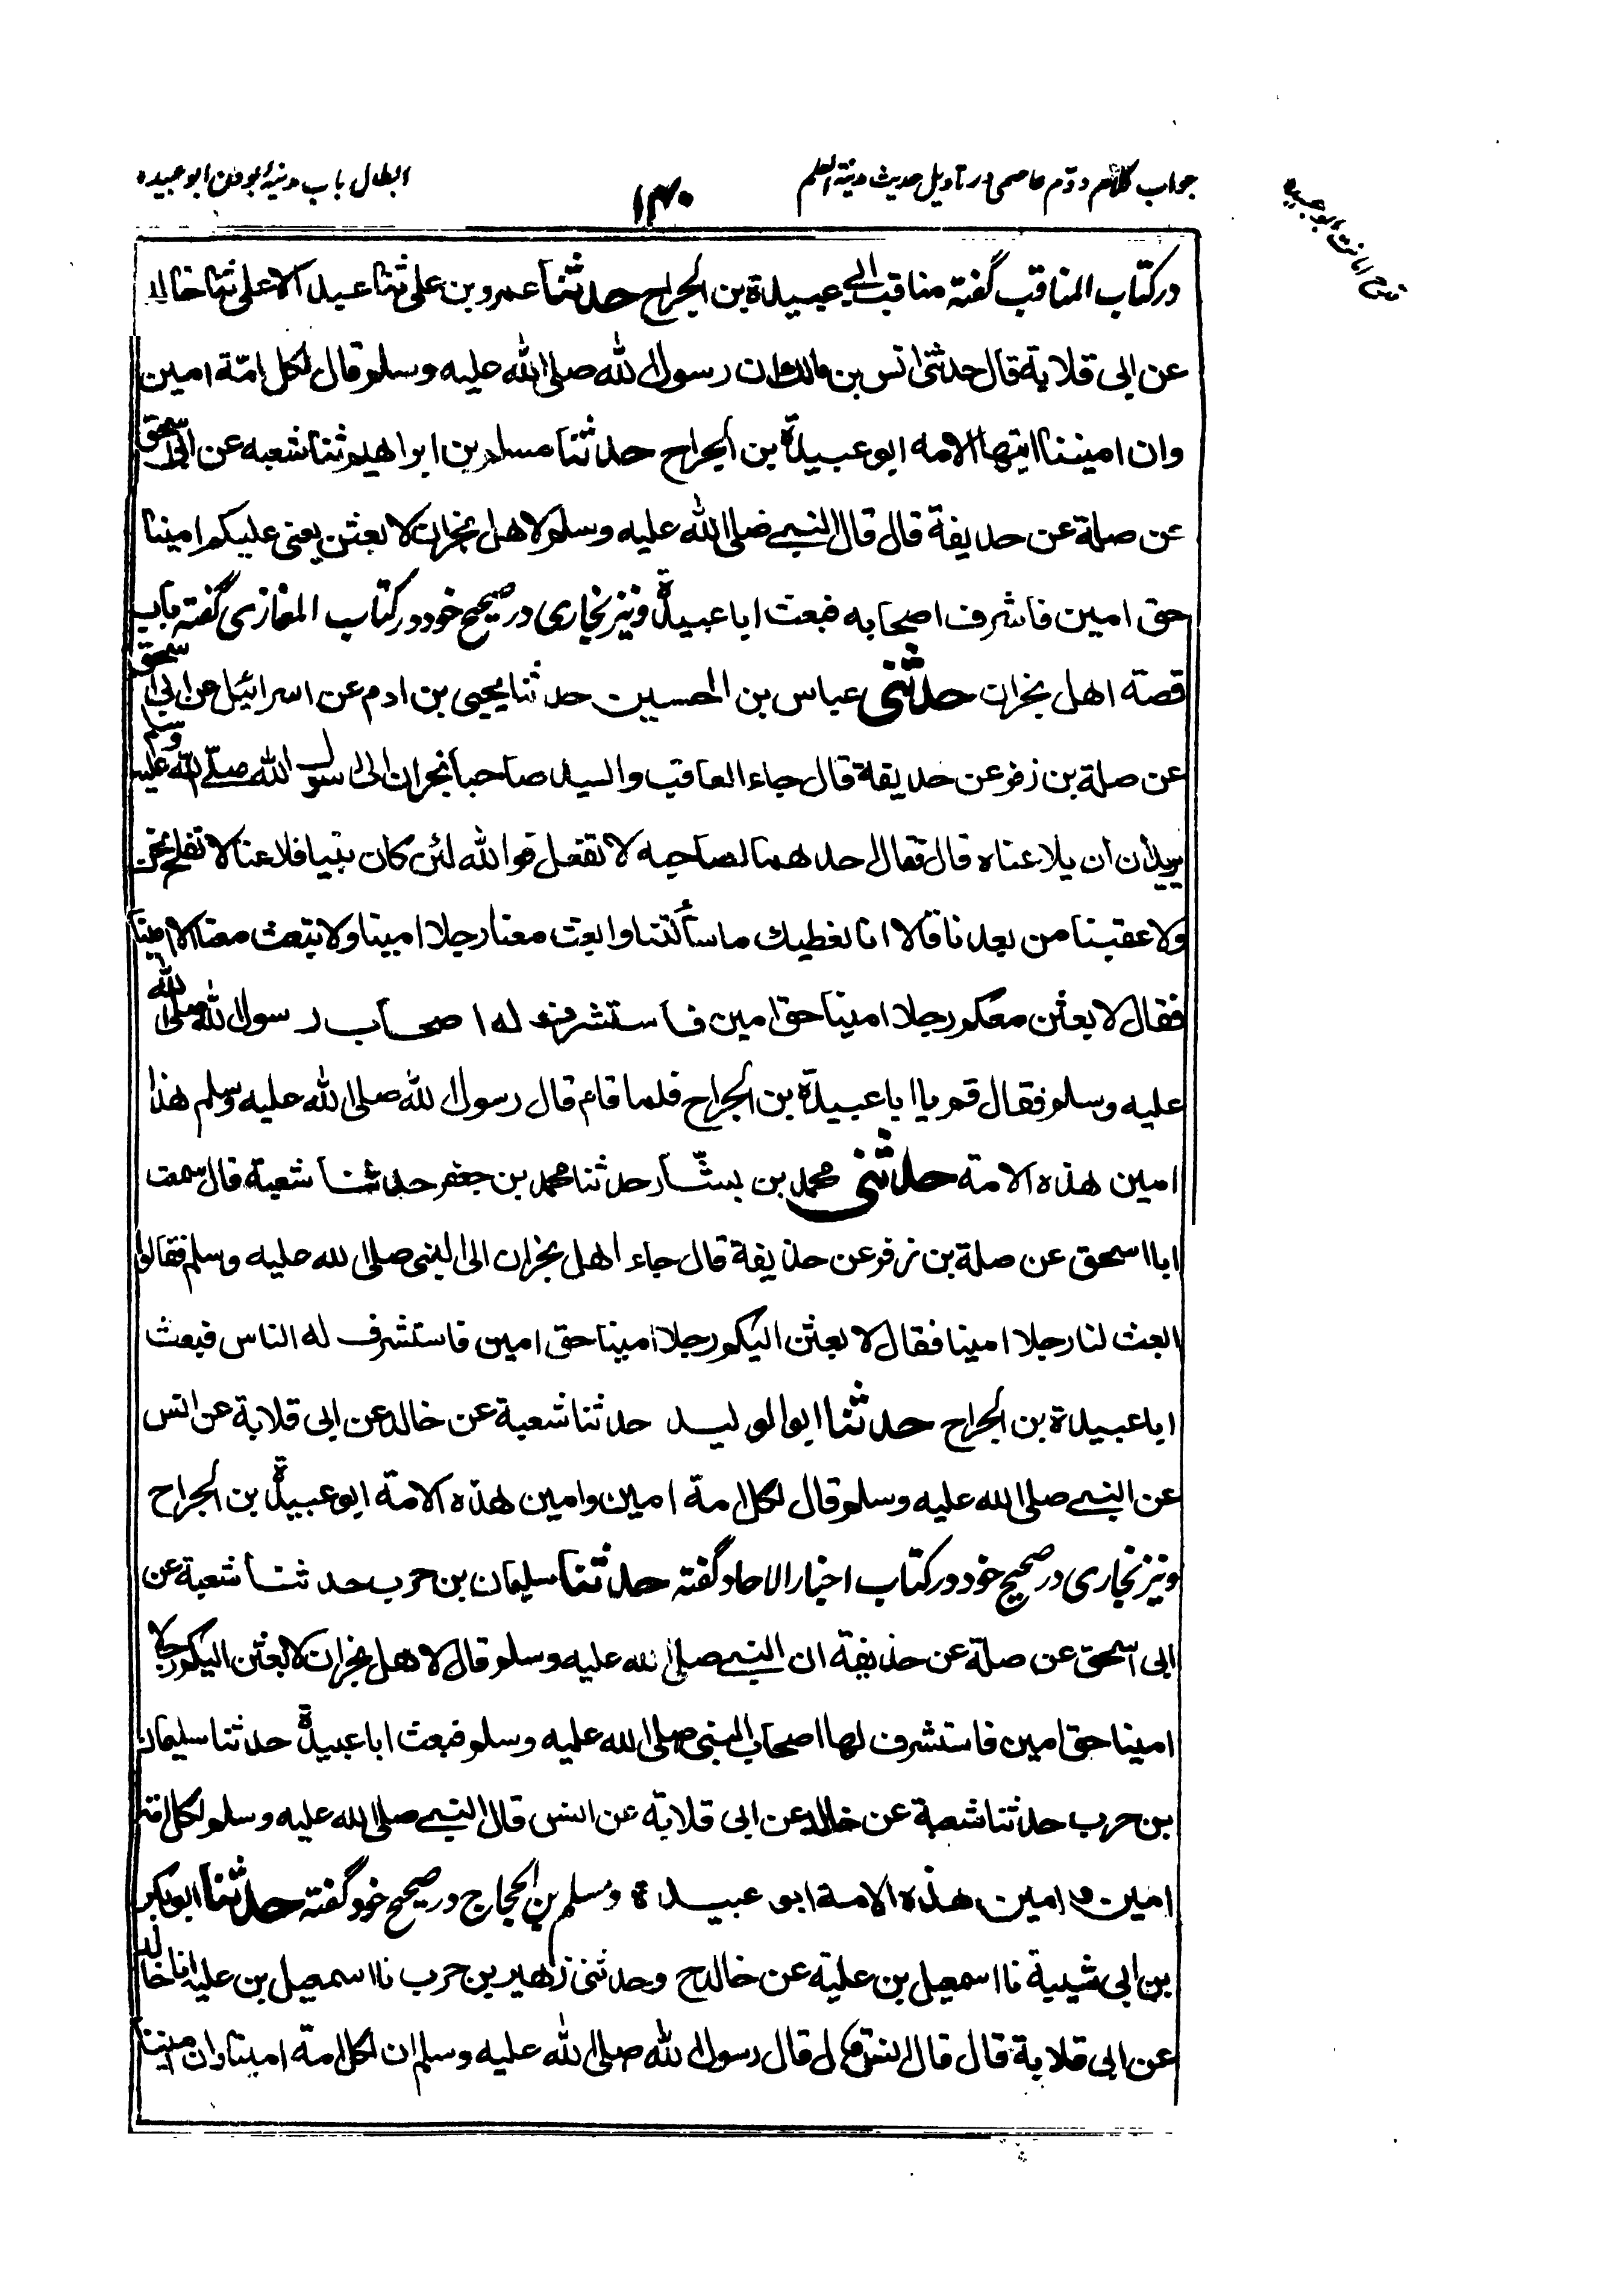 جواب کلام دوم عاصمی در تاویل حدیث مدینة العلم
۱۳۴۰
ابطال باب مدینه بودن ابو عبیده
قدح امانت ابو عبیده
در کتاب المناقب گفته مناقب ابی عبیدة بن الجراح حدثنا عمرو بن علی ثنا عبد الاعلی ثنا خالد
عن ابی قلابة قال حدثنی انس بن مالك ان رسول الله صلی الله علیه وسلم قال لكل امّة امین
وان امیننا ایتها الامه ابو عبیدة بن الجراح حدثنا مسلم بن ابراهیم ثنا شعبه عن ابی اسحق
عن صلة عن حذیفة قال قال النبی صلی الله علیه وسلم لاهل نجران لابعثن یعنی علیكم امینا
حق امین فاشرف اصحابه فبعث ابا عبیدة ونیز بخاری در صحیح خود در کتاب المغازی گفته باب
قصة اهل نجران حدثنی عباس بن الحسین حدثنا یحیی بن ادم عن اسرائیل عن ابی اسحق
عن صلة بن زفر عن حذیفة قال جاء العاقب والسید صاحبا نجران الی رسول الله صلّی الله علیه وسلم
یریدان ان یلاعناه قال فقال احدهما لصاحبه لا تفعل فوالله لئن كان نبیا فلاعنا لا نفلح نحن
ولا عقبنا من بعدنا قالا انا نعطیك ما سألتنا وابعث معنا رجلا امینا ولا تبعث معنا الا امینا
فقال لابعثن معكم رجلا امینا حق امین فاستشرف له اصحاب رسول الله صلی الله
علیه وسلم فقال قم یا ابا عبیدة بن الجراح فلما قام قال رسول الله صلی الله علیه وسلم هذا
امین هذه الامة حدثنی محمد بن بشّار حدثنا محمد بن جعفر حدثنا شعبة قال سمعت
ابا اسحق عن صلة بن زفر عن حذیفة قال جاء اهل نجران الی النبی صلی الله علیه وسلم فقالوا
ابعث لنا رجلا امینا فقال لابعثن الیكم رجلا امینا حق امین فاستشرف له الناس فبعث
ابا عبیدة بن الجراح حدثنا ابو الولید حدثنا شعبة عن خالد عن ابی قلابة عن انس
عن النبی صلی الله علیه وسلم قال لكل امة امین وامین هذه الامة ابو عبیدة بن الجراح
ونیز بخاری در صحیح خود در کتاب اخبار الاحاد گفته حدثنا سلیمان بن حرب حدثنا شعبة عن
ابی اسحق عن صلة عن حذیفة ان النبی صلی الله علیه وسلم قال لاهل نجران لابعثن الیكم رجلا
امینا حق امین فاستشرف لها اصحاب النبی صلی الله علیه وسلم فبعث ابا عبیدة حدثنا سلیمان
بن حرب حدثنا شعبة عن خالد عن ابی قلابة عن انس قال النبی صلی الله علیه وسلم لكل امة
امین و امین هذه الامة ابو عبیدة و مسلم بن الحجاج در صحیح خود گفته حدثنا ابو بكر
بن ابی شیبة نا اسمعیل بن علیة عن خالد ح وحدثنی زهیر بن حرب نا اسمعیل بن علیة انا خالد
عن ابی قلابة قال قال انس قال رسول الله صلی الله علیه وسلم ان لكل امة امینا وان امیننا